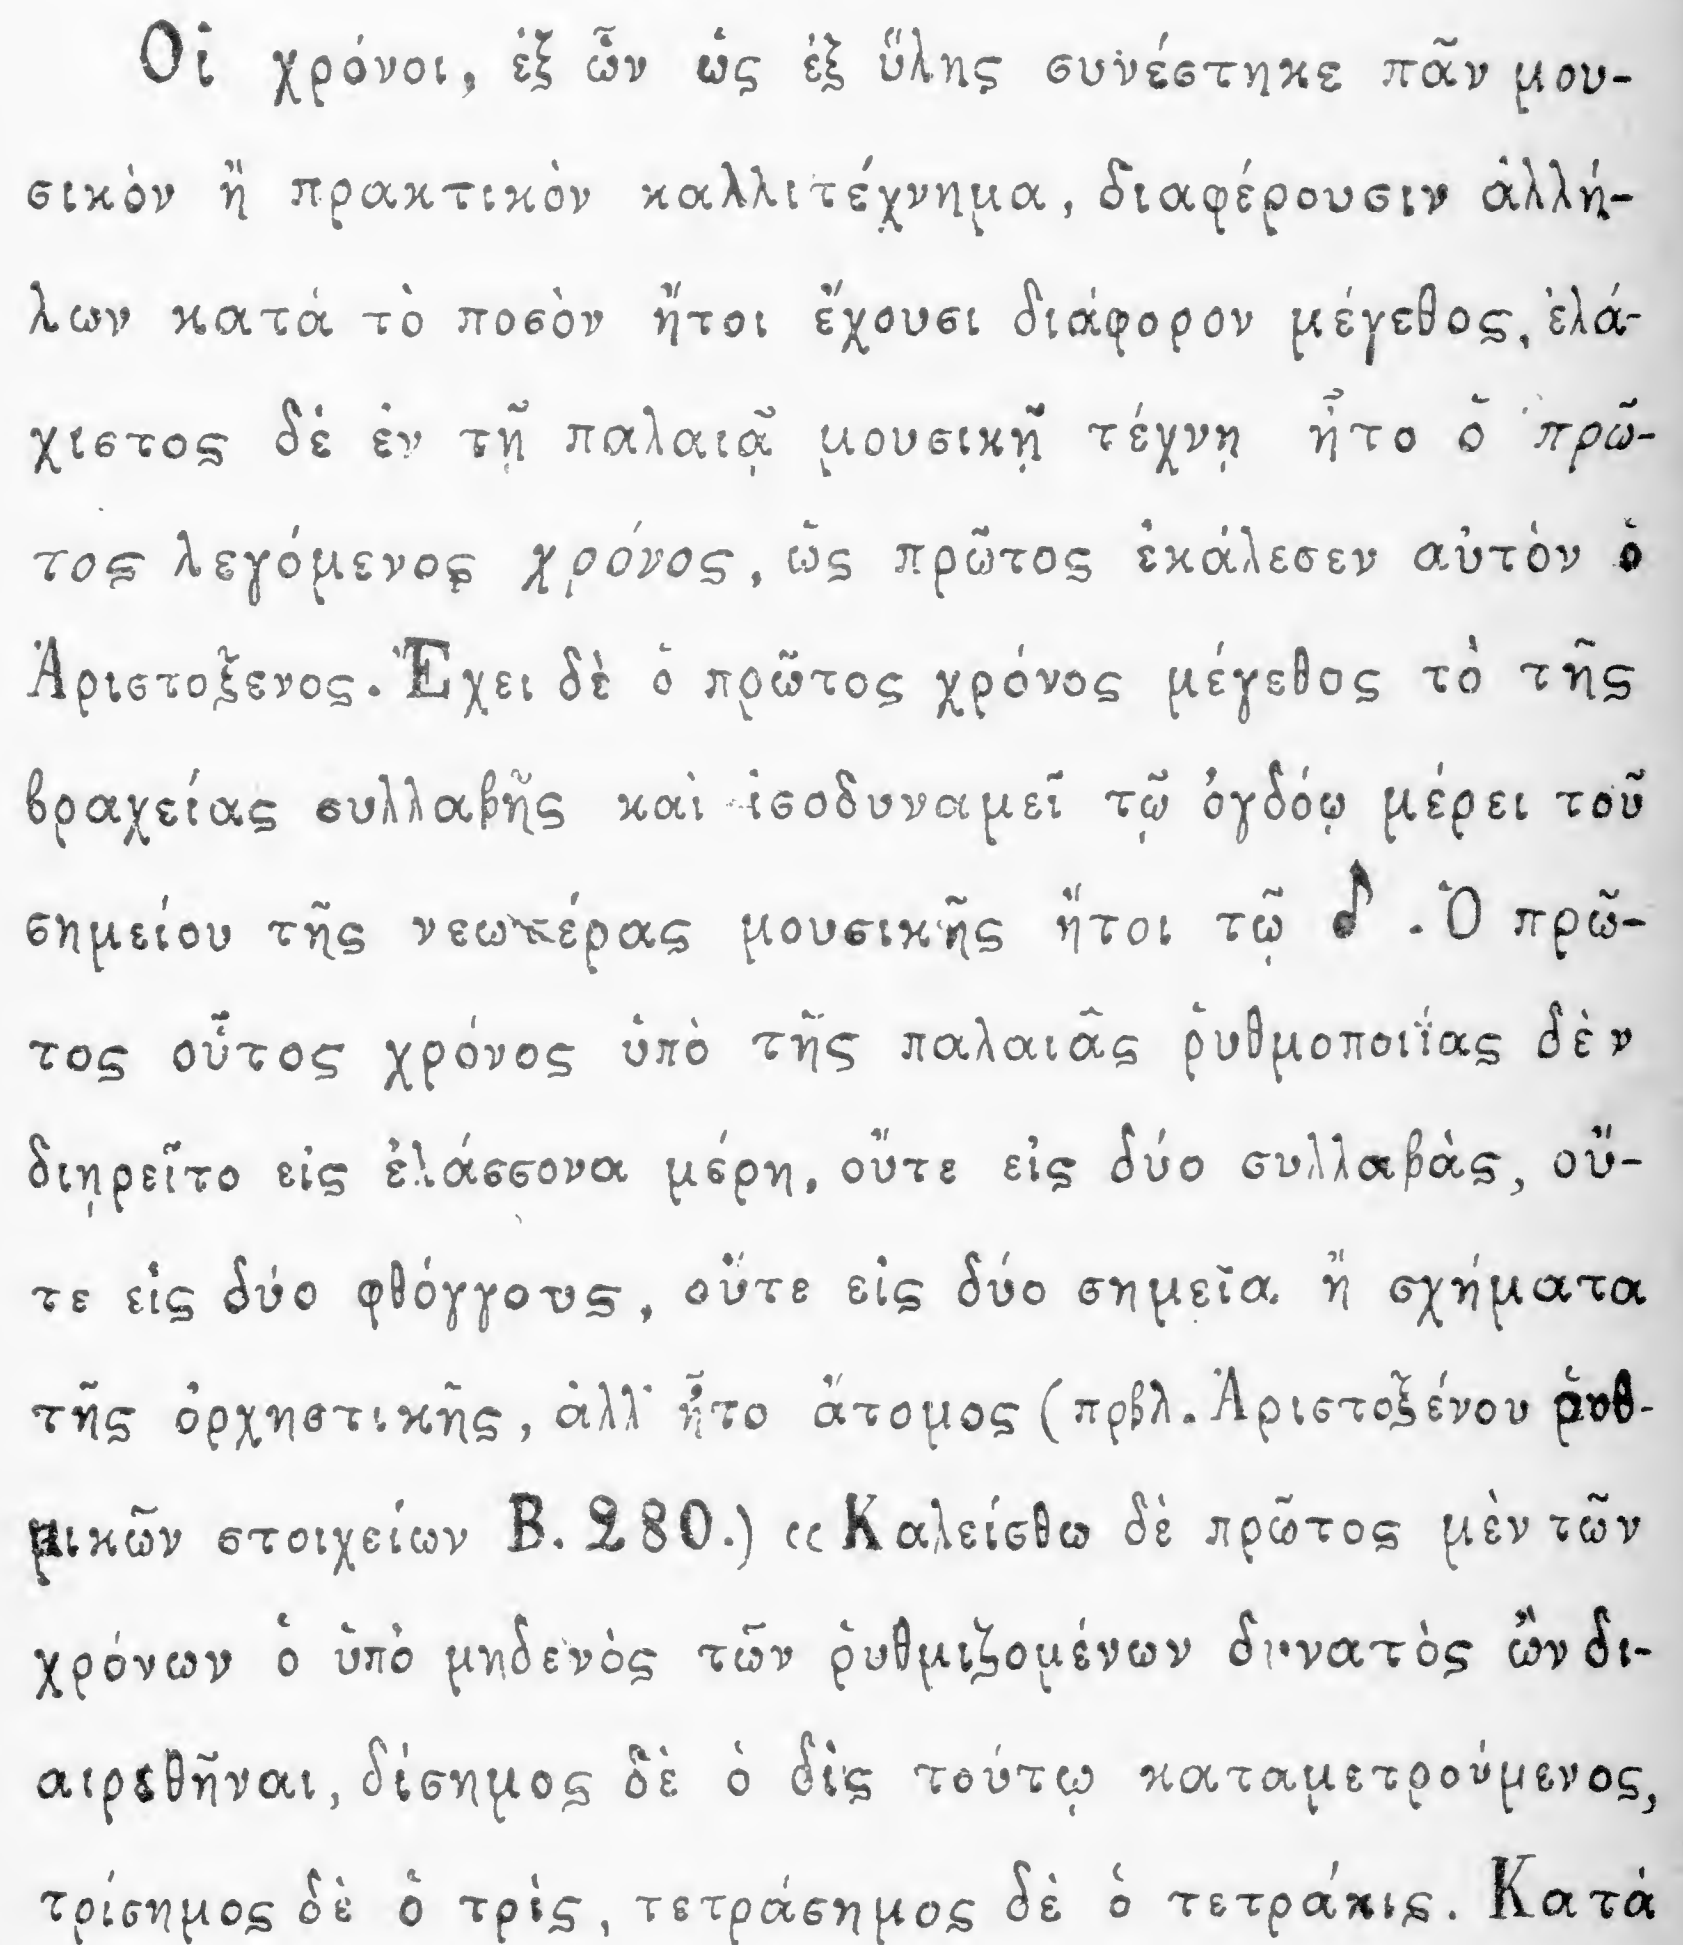 Οἱ χρόνοι, ἐξ ὧν ὡς ἐξ ὕλης συνέστηκε πᾶν μου-
σικὸν ἢ πρακτικὸν καλλιτέχνημα, διαφέρουσιν ἀλλή-
λων κατὰ τὸ ποσὸν ἤτοι ἔχουσι διάφορον μέγεθος, ἐλά-
χιστος δὲ ἐν τῇ παλαιᾷ μουσικῇ τέχνῃ ἦτο ὁ πρῶ-
τος λεγόμενος χρόνος, ὡς πρῶτος ἐκάλεσεν αὐτὸν ὁ
Ἀριστοξενος. Ἔχει δὲ ὁ πρῶτος χρόνος μέγεθος τὸ τῆς
βραχείας συλλαβῆς καὶ ἰσοδυναμεῖ τῷ ὀγδόῳ μέρει τοῦ
σημείου τῆς νεωτέρας μουσικῆς ἤτοι τῷ ♪. Ὁ πρῶ-
τος οὗτος χρόνος ὑπὸ τῆς παλαιᾶς ῥυθμοποιΐας δὲν
διῃρεῖτο εἰς ἐλάσσονα μέρη, οὔτε εἰς δύο συλλαβὰς, οὔ-
τε εἰς δύο φθόγγους, οὔτε εἰς δύο σημεῖα ἢ σχήματα
τῆς ὀρχηστικῆς, ἀλλ' ἦτο ἄτομος (πρβλ. Ἀριστοξένου ῥυθ-
μικῶν στοιχείων Β. 280.) «Καλείσθω δὲ πρῶτος μὲν τῶν
χρόνων ὁ ὑπὸ μηδενὸς τῶν ῥυθμιζομένων δυνατὸς ὢν δι-
αιρεθῆναι, δίσημος δὲ ὁ δὶς τούτῳ καταμετρούμενος,
τρίσημος δὲ ὁ τρὶς, τετράσημος δὲ ὁ τετράκις. Κατὰ